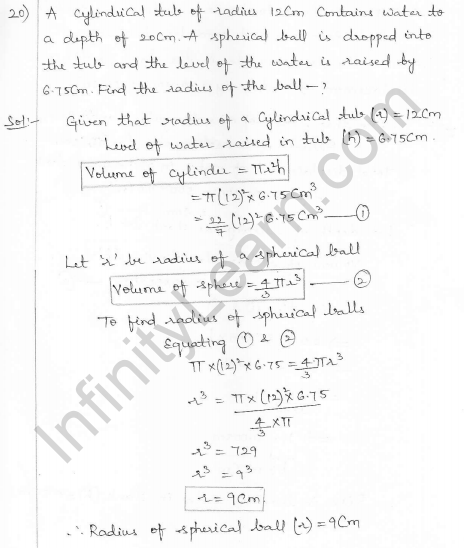 20) A Cylindrical tub of radius 12Cm Contains water to
a depth of 20Cm. A spherical ball is dropped into
the tub and the level of the water is raised by
6.75Cm. Find the radius of the ball – ?
Sol:- Given that radius of a Cylindrical tub (r) = 12Cm
Level of water raised in tub (h) = 6.75Cm.
Volume of cylinder = πr²h
= π(12)² × 6.75Cm³
= 22/7 (12)² 6.75Cm³ — ①
Let 'r' be radius of a spherical ball
Volume of sphere = 4/3 πr³ — ②
To find radius of spherical balls
Equating ① & ②
π × (12)² × 6.75 = 4/3 πr³
r³ = π × (12)² × 6.75 / 4/3 × π
r³ = 729
r³ = 9³
r = 9Cm
∴ Radius of spherical ball (r) = 9Cm
InfinityLearn.com